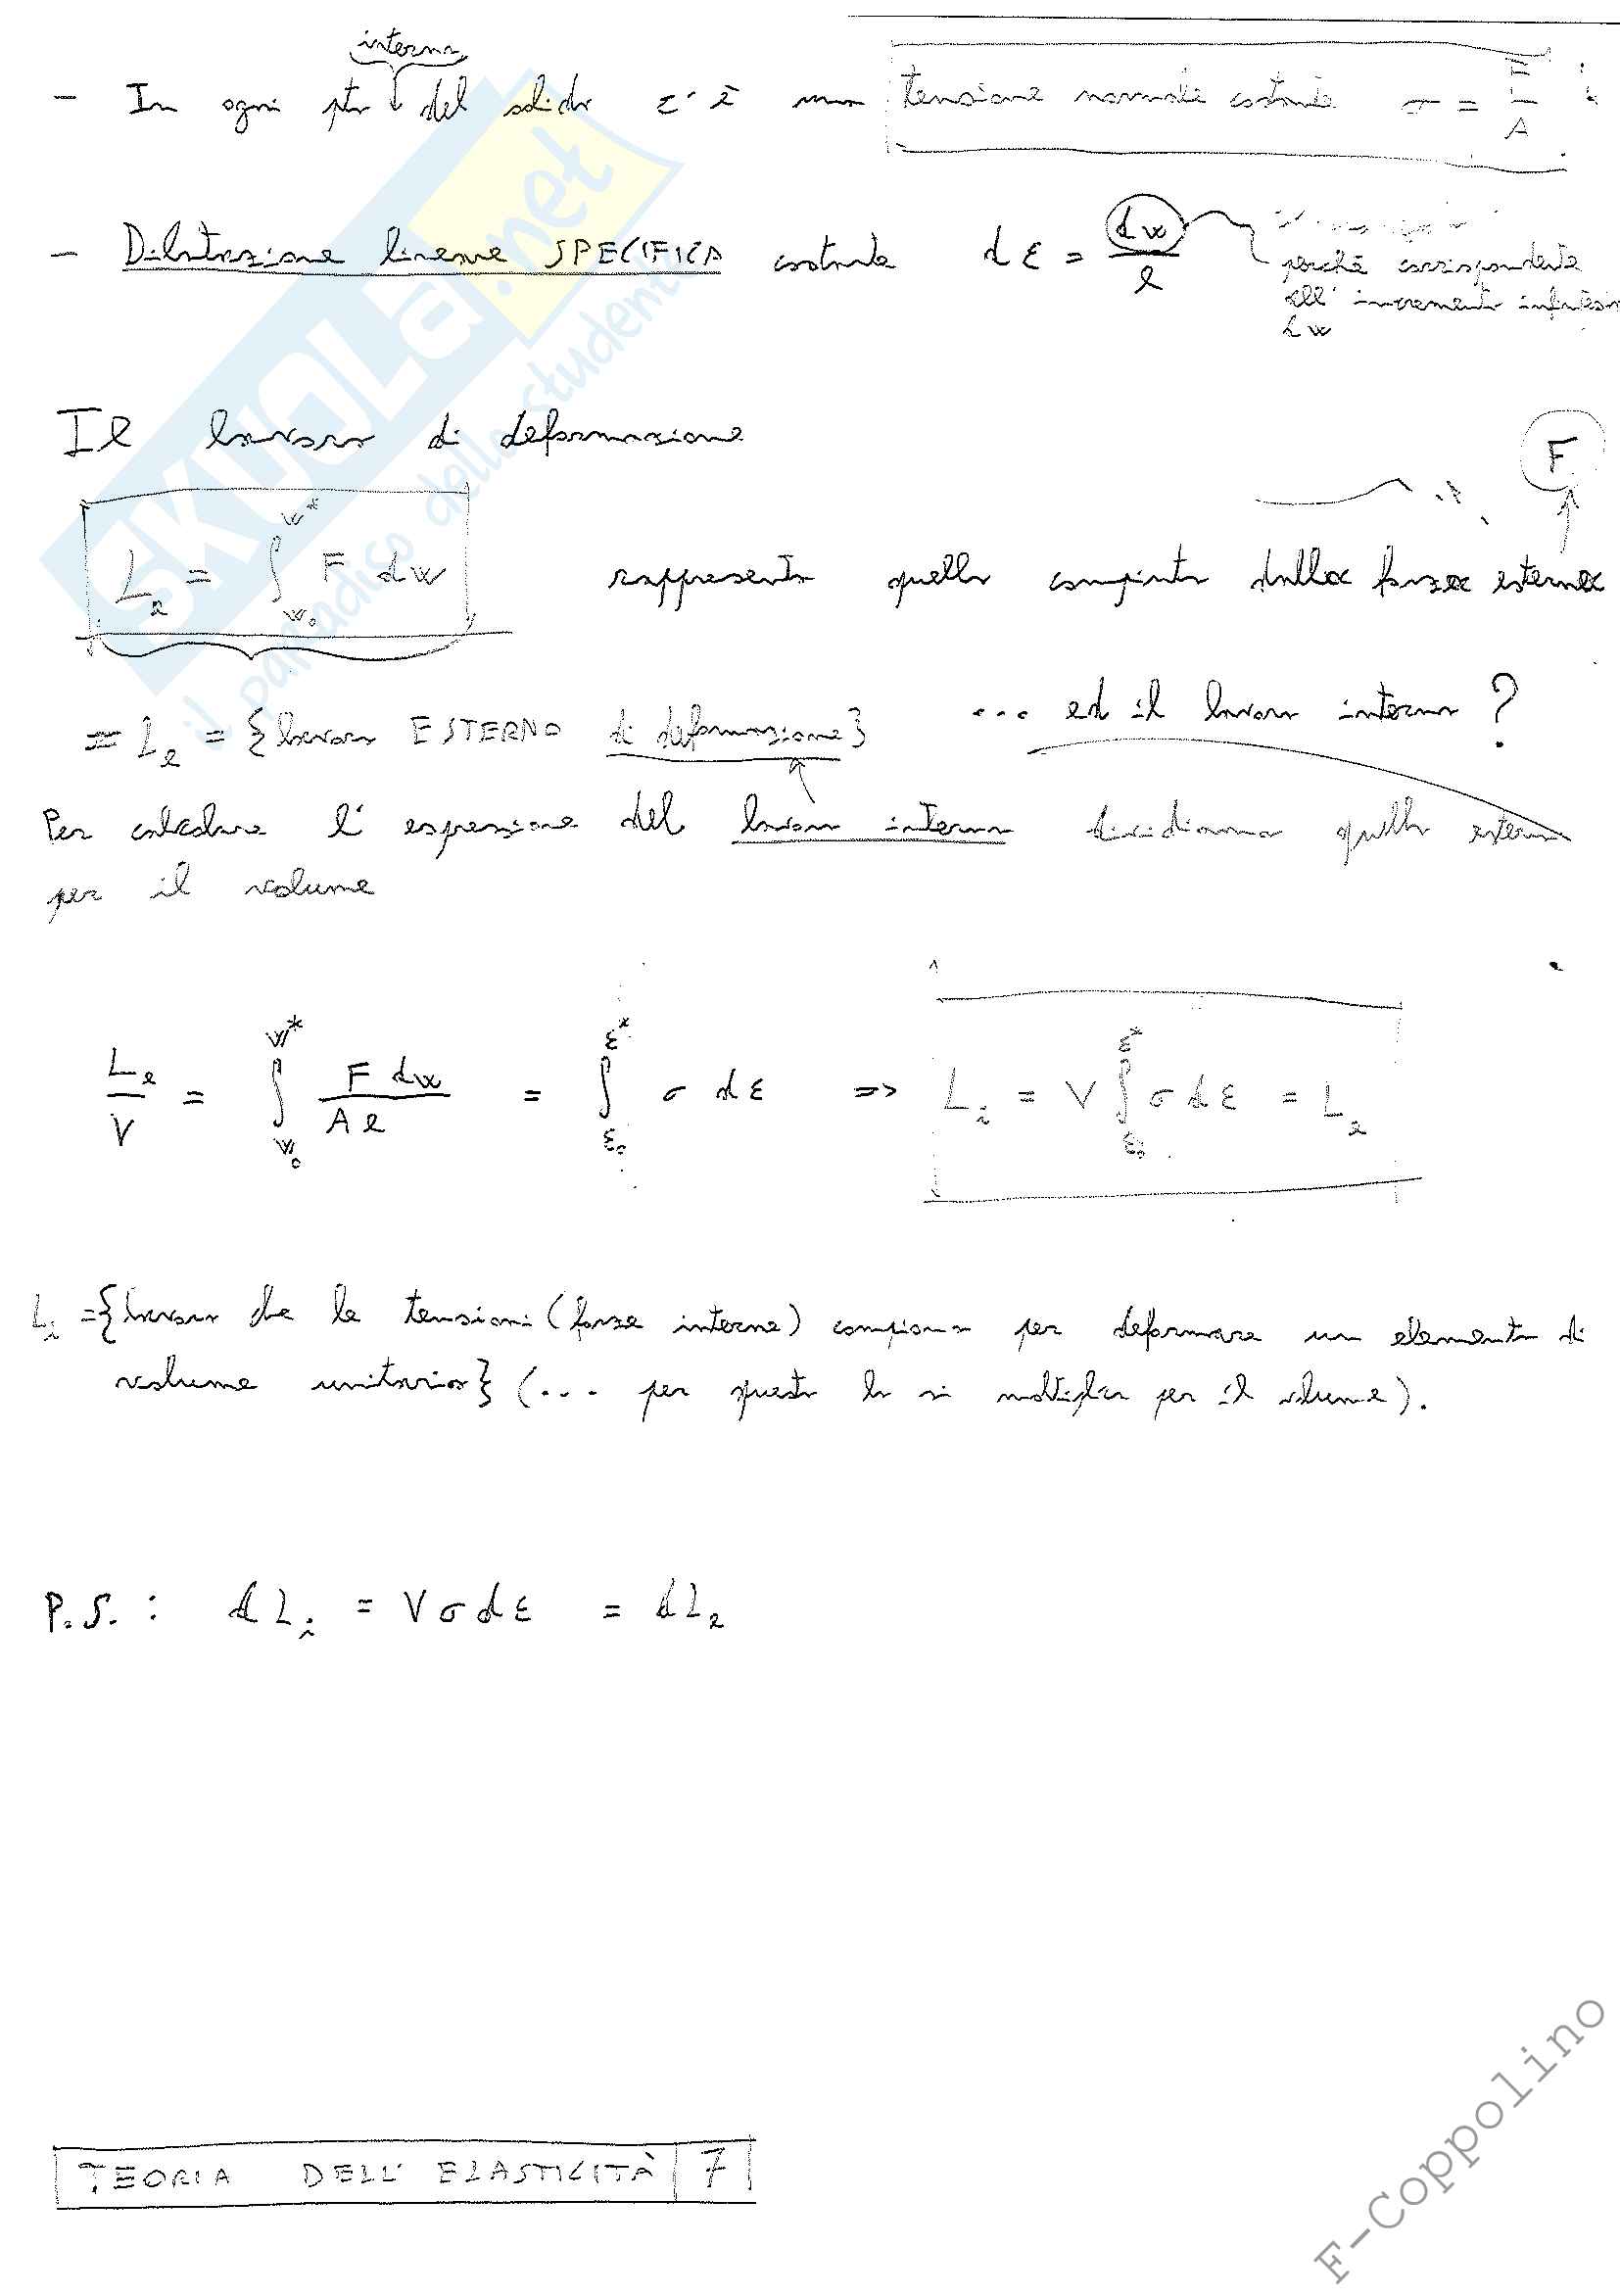 interno
- In ogni pto del solido c'è una tensione normale costante σ = F/A
- Dilatazione lineare SPECIFICA costante dε = dw/l
perché corrispondente
all' incremento
dw
Il lavoro di deformazione
F
L_e = ∫_{w_0}^{w*} F dw rappresenta quello compiuto dalla forza esterna
= L_e = {lavoro ESTERNO di deformazione} ... ed il lavoro interno?
Per calcolare l' espressione del lavoro interno dividiamo quello esterno
per il volume
L_e/V = ∫_{w_0}^{w*} F dw/Al = ∫_{ε_0}^{ε*} σ dε => L_i = V ∫_{ε_0}^{ε*} σ dε = L_e
L_i = {lavoro che le tensioni (forze interne) compiono per deformare un elemento di
volume unitario} (... per questo lo si moltiplica per il volume).
P.S.: dL_i = V σ dε = dL_e
TEORIA DELL' ELASTICITÀ 7
F-Coppolino
SKUOLA.net
il paradiso dello studente